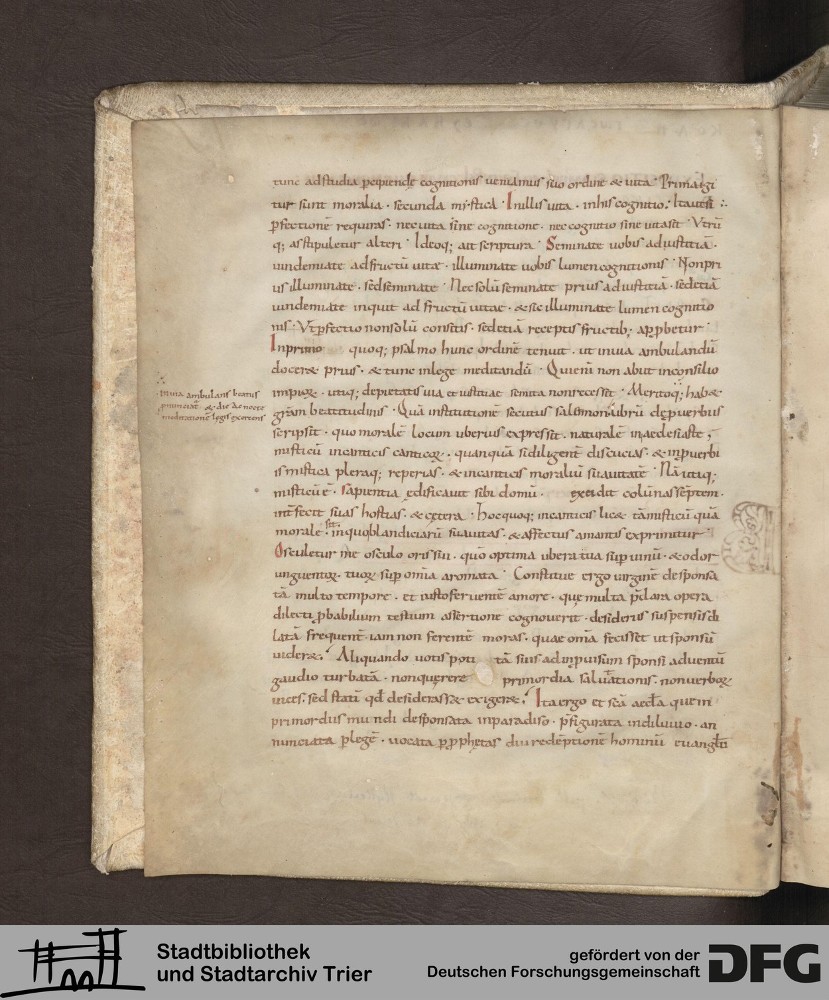 tunc ad studia ꝑcipiendę cognitionis ueniamus suo ordine & uita · Prima igi
tur sunt moralia · secunda mistica · In illis uita · in his cognitio ; Ita ut si
ꝑfectionē requiras · nec uita sine cognitione · nec cognitio sine uita sit · Vtrū
q; astipuletur alteri · Ideoq; ait scriptura · Seminate uobis ad iustitiā ·
uindemiate ad fructū uitae · illuminate uobis lumen cognitionis · Non pri
us illuminate · sed seminate · Nec solū seminate prius ad iustitiā · sed etiā
uindemiate inquit ad fructū uitae · & sic illuminate lumen cognitio
nis · Vt ꝑfectio non solū consitis · sed etiā receptis fructib; app̱betur ·
In primo quoq; psalmo hunc ordinē tenuit · ut in uia ambulandū
doceret prius · & tunc in lege meditandū · Qui eni non abiit in consilio
impioꝝ · utiq; de pietatis uia et iustitiae semita non recessit · Meritoq; habet
gr̄am beatitudinis · Quā institutionē secutus salomon librū de ꝓuerbiis
scripsit · quo moralē locum uberius expressit · naturalē in aeclesiaste ;
misticū in canticis canticoꝝ · quanquā si diligent̄ discutias · & in ꝓuerbi
is mistica pleraq; reperias · & in canticis moraliū suauitatē · Nā utiq;
misticū ē · sapientia ędificauit sibi domū · excidit colūnas septem ·
int̄fecit suas hostias · & cętera · Hoc quoq; in canticis licet tā misticū quā
morale sit · in quo blandiciarū suauitas · & affectus amantis exprimitur ·
Osculetur me osculo oris sui · quō optima ubera tua sup̱ uinū · & odor
unguentoꝝ tuoꝝ sup̱ om̄ia aromata · Constitue ergo uirginē desponsa
tā multo tempore · et iusto feruentē amore · quę multa p̄clara opera
dilecti ꝓbabilium testium assertione cognouerit · desideriis suspensis di
latā frequent̄ · iam non ferentē moras · quae om̄ia fecisset ut sponsū
uideret · Aliquando uotis poti tā suis ad inꝓuisum sponsi aduentū
gaudio turbatā · non quęrere primordia salutationis · non uerboꝝ
uices · sed statī qd̄ desiderasset exigeret · Ita ergo et sc̄a aeccl̄a quę in
primordiis mundi desponsata in paradiso · p̄figurata in diluuio · an
nunciata ꝑ legē · uocata ꝑ ꝓphetas diu redēptionē hominū euangl̄ii
In uia ambulans beatus
& die ac nocte
meditationē legis exercens
Stadtbibliothek
und Stadtarchiv Trier
gefördert von der
Deutschen Forschungsgemeinschaft
DFG